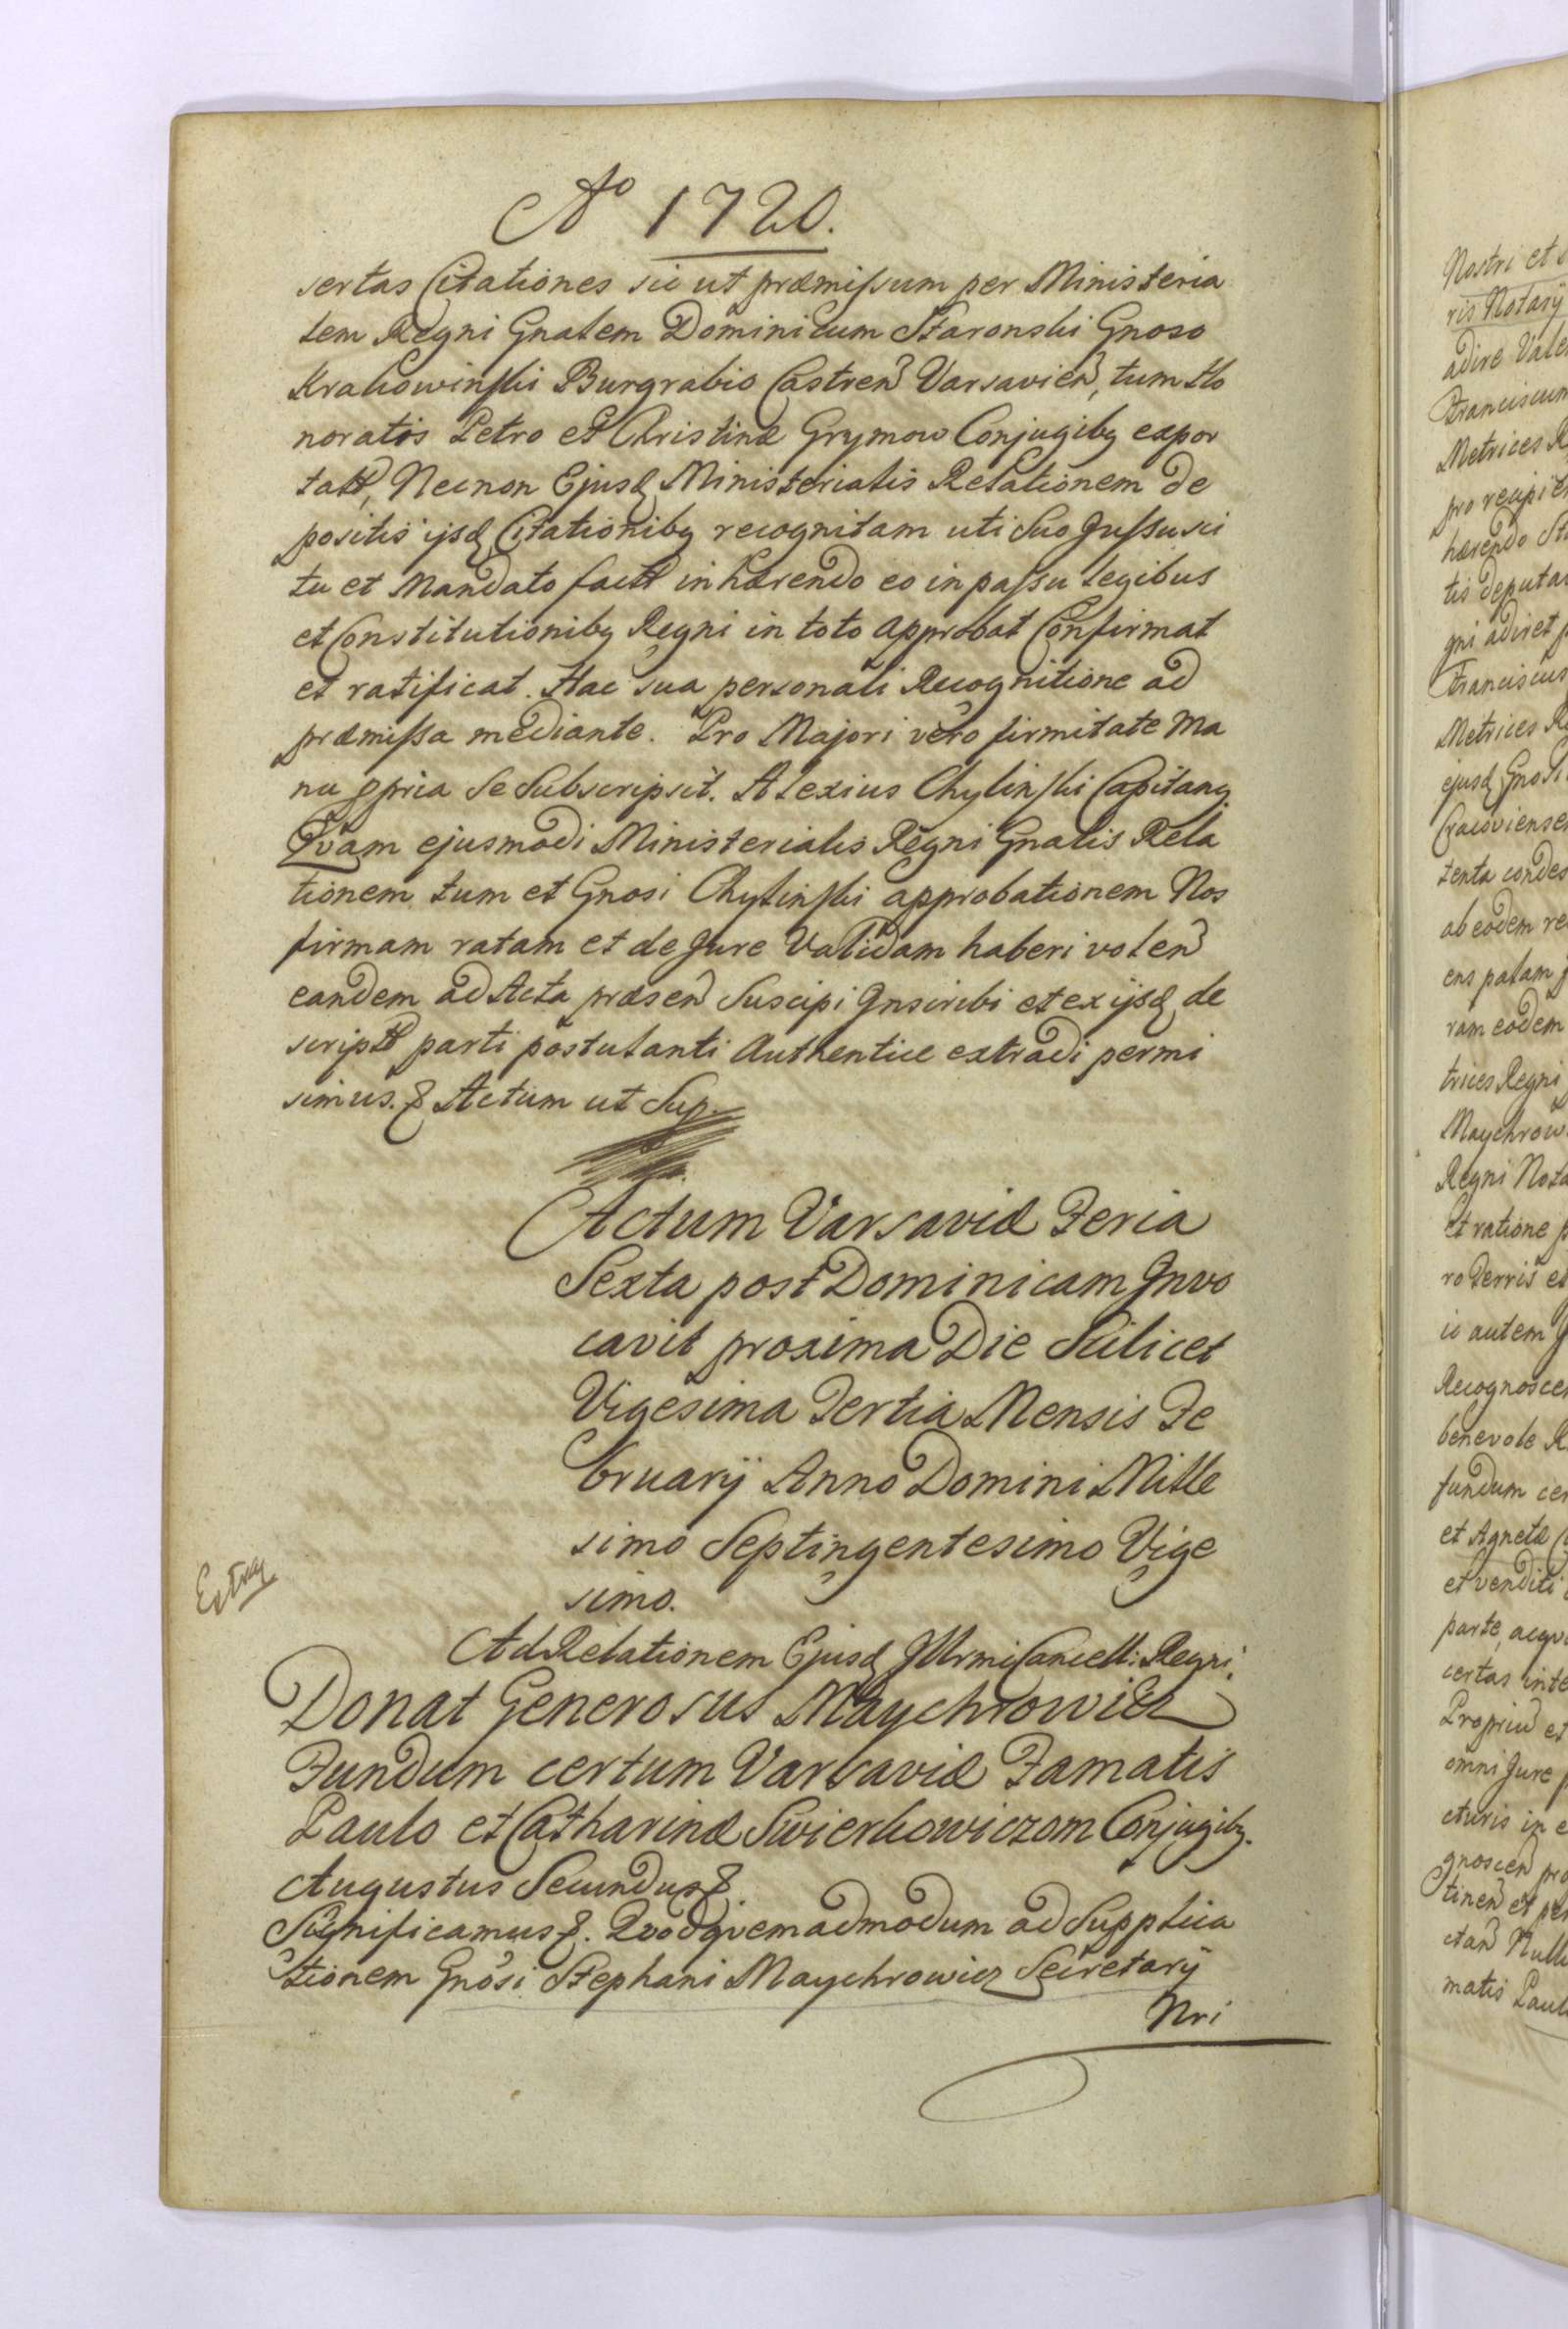 Aō 1720.
sertas Citationes sic ut præmissum per Ministeria
lem Regni Gnalem Dominicum Staronski Gnoso
Krakowinski Burgrabio Castren Varsavien, tum Ho
noratis Petro et Christinæ Grymow Conjugibg expor
tatt, Necnon Ejusd Ministerialis Relationem de
positis ijsd Citationibg recognitam uti Suo Jussu sci
tu et Mandato fact inhærendo eo in passu legibus
et Constitutionibg Regni in toto approbat Confirmat
et ratificat. Hac sua personali Recognitione ad
præmissa mediante. Pro Majori vero firmitate Ma
nu ppria Se Subscripsit. Alexius Chylinski Capitang.
Qvam ejusmodi Ministerialis Regni Gnalis Rela
tionem tum et Gnosi Chylinski approbationem Nos
firmam ratam et de Jure Validam haberi volen
eandem ad Acta præsen Suscipi Inscribi et ex ijsd de
script parti postulanti Authentice extradi permi
simus. & Actum ut Sup.
Actum Varsaviæ Feria
Sexta post Dominicam Invo
cavit proxima Die Scilicet
Vigesima Tertia Mensis Fe
bruarij Anno Domini Mille
simo Septingentesimo Vige
simo.
Ad Relationem Ejusd Illrmi Cancell: Regni.
Donat Generosus Maychrowicz
Fundum certum Varsaviæ Famatis
Paulo et Catharinæ Swierkowiczom Conjugibg.
Augustus Secundus &
Significamus &. Qvod qvemadmodum ad Supplica
tionem Gnosi Stephani Maychrowicz Secretarij
Nri
Nostri et
ris Notarij
adire Vale
Franciscum
Metrices R
pro recipie
hærendo St
tis deputa
gni adiret p
Franciscus
Metrices Re
ejusd Gnosi
Cracoviense
tenta condes
ab eodem re
ens palam
ram eodem
trices Regni
Maychrow
Regni Nota
et ratione p
ro Terris et
is autem
Recognosce
benevole R
fundum cer
et Agnetæ C
et venditi
parte, acqv
certas inte
Propriæ et
omni Jure p
cturis in e
gnoscen pro
tinen et per
ctan Null
matis Paul